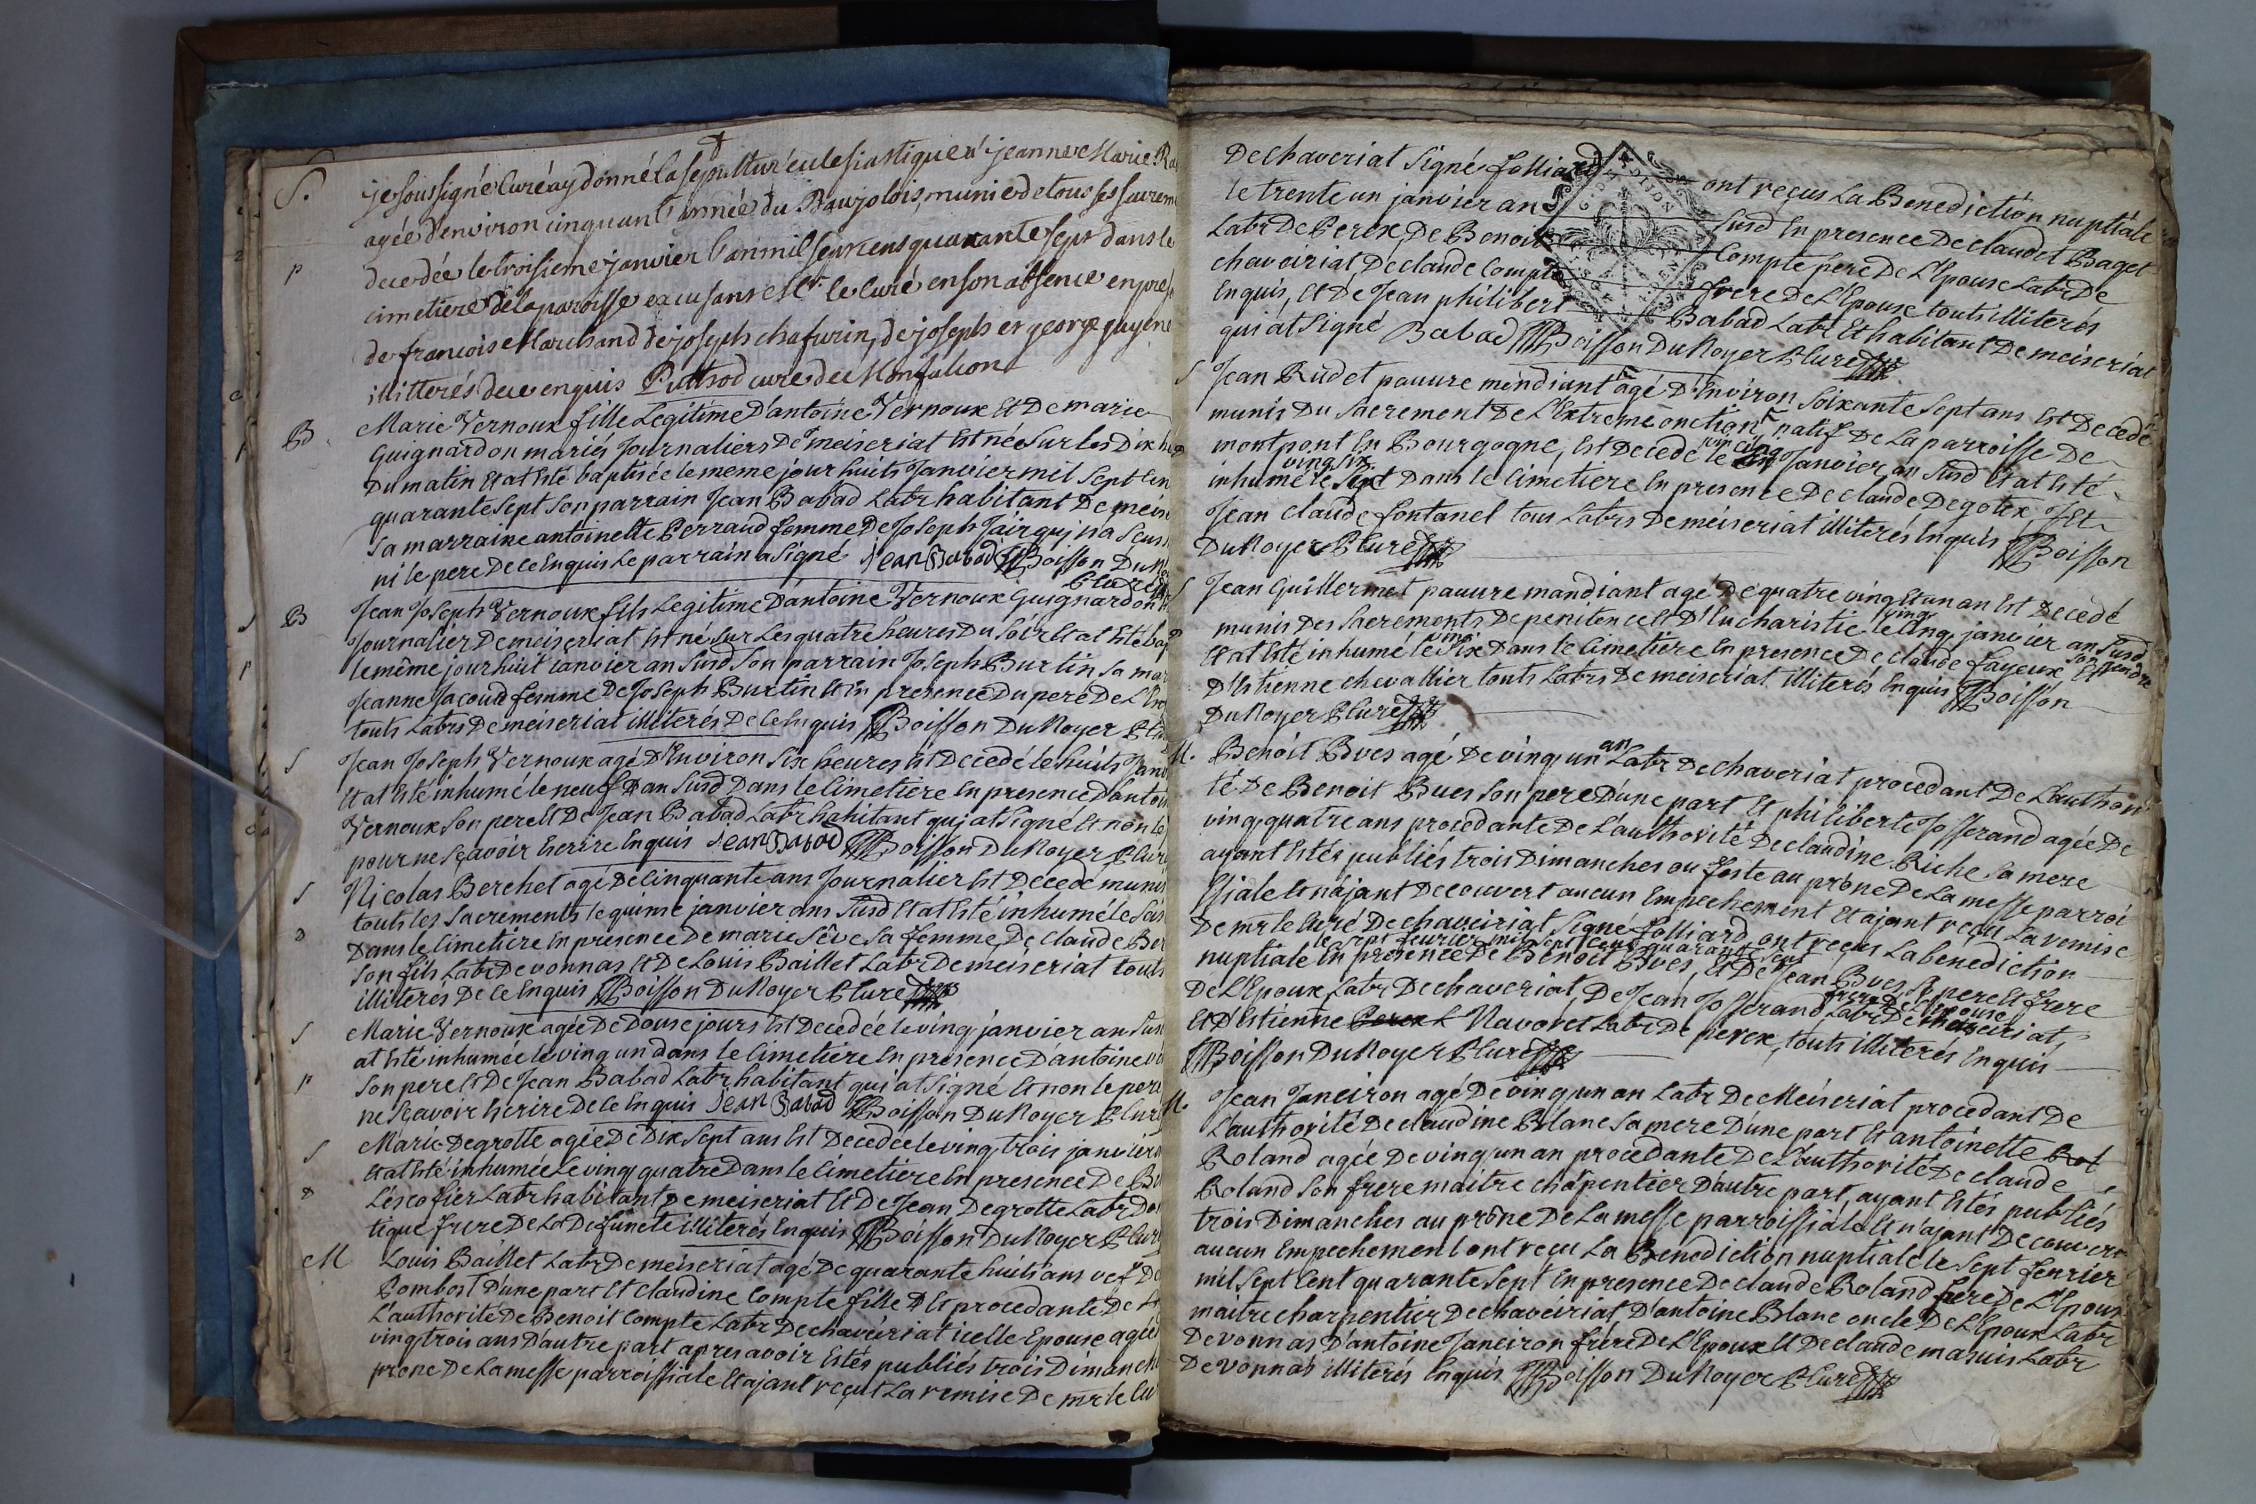 S. je soussigné curé ay donné la sepulture eclesiastique a jeanne Marie
agée d'environ cinquant année du Baujolois, munie de tous ses sacrem
p decedée le troisieme janvier l'an mil sept cens quarante sept dans le
cimetiere de la paroisse excusant Mr. le curé en son absence en pres
de francoise Marchand de joseph chafurin, de joseph et george guyene
illitterés de ce enquis Puthod curé de Monfalcon
B Marie Vernoux fille Legitime D'antoine Vernoux Et De marie
Guignardon mariés Journaliers De meiseriat Est née Sur Les Dix he
Du matin Et at Esté baptisée le meme jour huits Janvier mil Sept Cen
quarante Sept Son parrain Jean Babad Labr habitant De meise
Sa marraine antoinette Perraud femme De Joseph Jair quj na Sceus
ni le pere De ce Enquis Le parrain a Signé jean Babad Boisson Du No
Curé
B Jean Joseph Vernoux fils Legitime D'antoine Vernoux Guignardon
Journalier De meiseriat Est né Sur Les quatre heures Du Soir Et at Esté bap
le même jour huit ianvier an Susd Son parrain Joseph Burtin Sa mar
Jeanne Jacoud femme De Joseph Burtin Et En presence Du pere De L'En
touts Labrs De meiseriat illiterés De Ce Enquis Boisson Du Noyer
S Jean Joseph Vernoux agé D'Environ Six heures Est Decedé le huits Janv
Et at Esté inhumé le neuf D an Susd Dans le Cimetiere En presence D'antoin
Vernoux Son pere Et De Jean Babad Labr habitant quj at Signé Et non le
pour ne Sçavoir Ecrire Enquis jean Babad Boisson Du Noyer Curé
S Nicolas Berchet agé De Cinquante ans Journalier Est Decedé munis
touts les Sacrements le quinse janvier an Susd Et at Esté inhumé le Sei
D Dans le Cimetiere En presence De marie Sêve Sa femme, De Claude Ber
Son fils Labr De vonnas Et De Louis Baillet Labr De meiseriat touts
illiterés De Ce Enquis Boisson Du Noyer Curé
S Marie Vernoux agée De Douse jours Est Decedée le ving janvier an Sus
at Esté inhumée le ving un dans le Cimetiere En presence D'antoine
p Son pere Et De Jean Babad Labr habitant qui at Signé Et non le pere
ne Sçavoir Ecrire De Ce Enquis jean Babad Boisson Du Noyer Curé
S Marie Degrotte agée De Dix Sept ans Est Decedée le ving trois janvier
Et at Esté inhumée Le ving quatre Dans le Cimetiere En presence De
D Lescofier Labr habitant De meiseriat Et De Jean Degrotte Labr
tique frere De La Defuncte illiterés Enquis Boisson Du Noyer
M Louis Baillet Labr De meiseriat agé De quarante huits ans vef De
Bombost D'une part Et Claudine Compte fille D Et procedante De
L'authorité De Benoit Compte Labr De chaveiriat icelle Epouse agée
vingt trois ans D'autre part apres avoir Estés publiés trois Dimanch
prone De La messe parroissiale Et ajant reçut La remise De mr le Cu
De chaveriat Signé folliard ont reçus La Benediction nuptiale
le trente un janvier an Susd En presence De claudet Baget
Labr De Perex, De Benoit Compte pere De L'Epouse Labr De
chaveiriat, De claude Compte frere De L'Epouse touts illiterés
Enquis, Et De Jean philibert Babad Labr Et habitant De meiseriat
qui at Signé Babad Boisson Du Noyer Curé
S Jean Rudet pauvre mendiant agé D'Environ Soixante Sept ans Est Decedé
munis Du Sacrement De L'Extreme onction, natif De La parroisse De
montpont En Bourgogne, Est Decedé le vin cinq Janvier an Susd Et at Esté
inhumé le ving Six Dans le Cimetiere En presence De claude Degotex Et
Jean claude fontanel tous Labrs De meiseriat illiterés Enquis Boisson
Du Noyer Curé
S Jean Guillermet pauvre mandiant agé De quatre ving Et un an Est Decedé
munis Des Sacrements De penitence Et D'Eucharistie le ving Cinq janvier an Susd
Et at Esté inhumé le ving Six Dans le Cimetiere En presence De claude fayeux, Son gendre Et
D'Estienne chevallier touts Labrs De meiseriat illiterés Enquis Boisson
Du Noyer Curé
M. Benoit Bves agé De ving un an Labr De chaveriat procedant De L'authori
té De Benoit Bves Son pere D'une part Et philiberte Josserand agée De
ving quatre ans procedante De L'authorité De claudine Riche Sa mere
ayant Estés publiés trois Dimanches ou feste au prône De La messe parroi
ssiale Et n'ajant Decouvert aucun Empechement Et ajant reçu La remise
De mr le curé De chaveiriat Signé folliard ont reçus La benediction
nuptiale le Sept fevrier mil Sept Cent quarante Sept En presence De Benoit Bves, Et De Jean Bves pere Et frere
De L'Epoux, Labr De chaveriat, De Jean Josserand frere De L'Epouse Labr De chaveiriat,
Et D'Estienne Navoret Labr De perex, touts illiterés Enquis
Boisson Du Noyer Curé
M. Jean Janeiron agé De ving un an Labr De Meiseriat procedant De
L'authorité De claudine Blanc Sa mere D'une part Et antoinette Rol
Roland agée De ving un an procedante De L'authorité De claude
Roland Son frere maitre charpentier D'autre part, ayant Estés publiés
trois Dimanches au prône De La messe parroissiale Et n'ajant Decouvert
aucun Empechement ont reçu La Benediction nuptiale le Sept fevrier
mil Sept Cent quarante Sept En presence De claude Roland frere De L'Epouse
maitre charpentier De chaveiriat, D'antoine Blanc oncle De L'Epoux Labr
De vonnas D'antoine Janeiron frere De L'Epoux Et De claude masuis Labr
De vonnas illiterés Enquis Boisson Du Noyer Curé